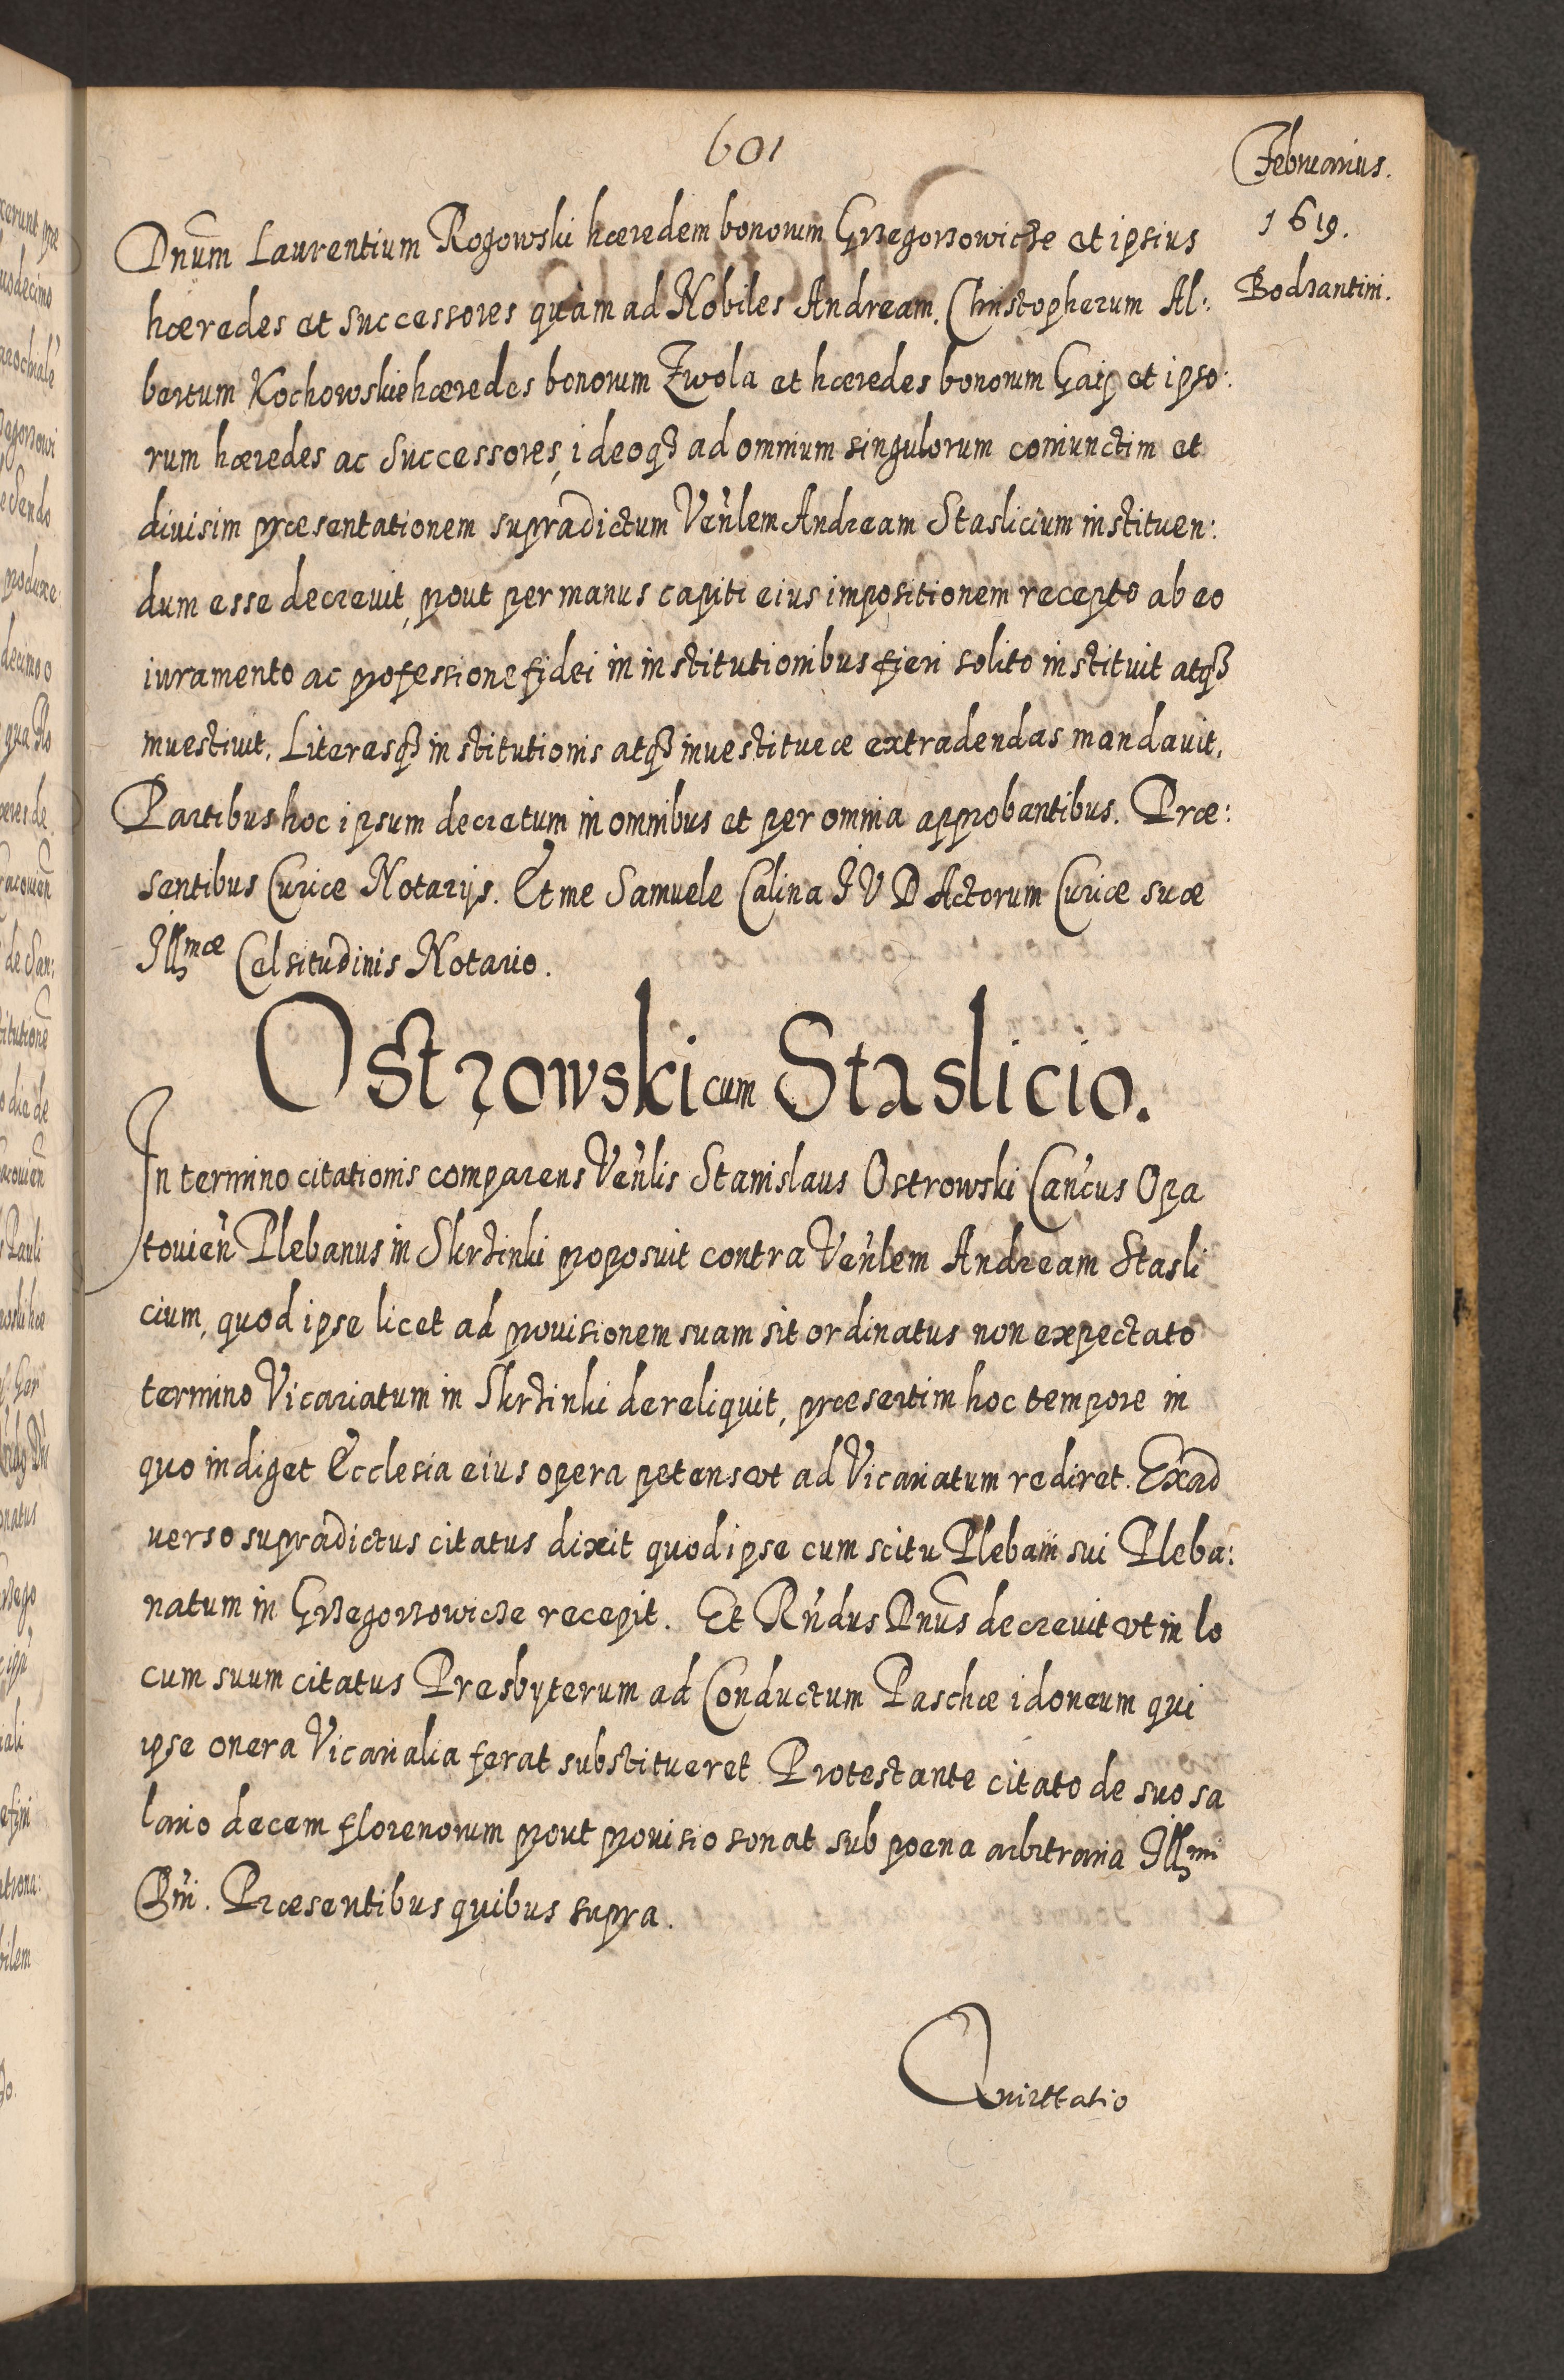 601
Februarius.
1619.
Bodzantini.
Dnum Laurentium Rogowski hæredem bonorum Grzegorzowicze et ipsius
hæredes et successores quàm ad Nobiles Andream, Christopherum Al:
bertum Kochowskie hæredes bonorum Zwola et hæredes bonorum Gaiy et ipso:
rum hæredes ac Successores, ideoqз ad omnium singulorum coniunctim et
diuisim præsentationem supradictum Venlem Andream Staslicium instituen:
dum esse decreuit, prout per manus capiti eius impositionem recepto ab eo
iuramento ac professione fidei in institutionibus fieri solito instituit atqз
inuestiuit. Literasqз institutionis atqз inuestituræ extradendas mandauit.
Partibus hoc ipsum decretum in omnibus et per omnia approbantibus. Præ:
sentibus Curiæ Notarijs. Et me Samuele Calina I V D Actorum Curiæ suæ
Illmæ Celsitudinis Notario.
Ostrowski cum Staslicio.
In termino citationis comparens Venlis Stanislaus Ostrowski Cancus Opa
touien Plebanus in Skrzinki proposuit contra Venlem Andream Stasli
cium, quod ipse licet ad prouisionem suam sit ordinatus non expectato
termino Vicariatum in Skrzinki dereliquit, præsertim hoc tempore in
quo indiget Ecclesia eius opera petens vt ad Vicariatum rediret. Exad
uerso supradictus citatus dixit quod ipse cum scitu Plebani sui Pleba:
natum in Grzegorzowicze recepit. Et Rndus Dnus decreuit vt in lo
cum suum citatus Presbyterum ad Conductum Paschæ idoneum qui
ipse onera Vicarialia ferat substitueret Protestante citato de suo sa
lario decem florenorum prout prouisio sonat sub poena arbitraria Illmi
Pni. Præsentibus quibus supra.
Quiettatio